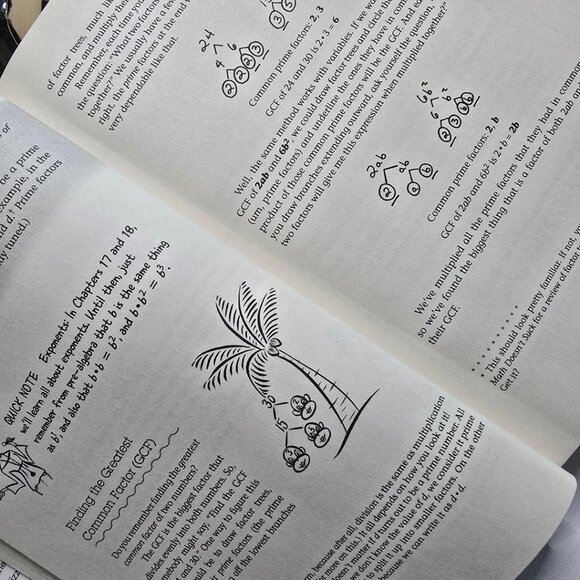 s of
be a prime
example, in the
d d⁺ Prime factors
ly tuned.)
QUICK NOTE Exponents: In Chapters 17 and 18,
we'll learn all about exponents. Until then, just
remember from pre-algebra that b is the same thing
as b¹, and also that b • b = b², and b • b² = b³.
Finding the Greatest
Common Factor (GCF)
Do you remember finding the greatest
common factor of two numbers?
The GCF is the biggest factor that
divides evenly into both numbers. So,
somebody might say, Find the GCF
and 30. One way to figure this
would be to draw factor trees,
prime factors (the prime
of the lowest branches
30
15
2
3
5
because after all, division is the same as multiplication
more on this.) It all depends on how you look at it!
doesn't matter if d turns out to be a prime number. All
we don't know the value of d, we consider it prime
split it up into smaller factors. On the other
because we can write it as d • d.
of factor trees, much like
common, and multiply the
Remember, each time you
the question: "What two factors
together?" We usually have a few
right, the prime factors at the end w
very dependable like that.
24
4 6
2 2 2 3
3 5
Common prime factors: 2, 3
GCF of 24 and 30 is 2 • 3 = 6
Well, the same method works with variables. If we wa
GCF of 2ab and 6b² we could draw factor trees and circle the
(um, prime factors) and underline the ones they have in comm
product of those common prime factors will be the GCF. And eac
you draw branches extending outward, ask yourself the question,
two factors will give me this expression when multiplied together?"
2ab
2 ab
a b
6b²
6 b²
2 3 b b
Common prime factors: 2, b
GCF of 2ab and 6b² is 2 • b = 2b
We've multiplied all the prime factors that they had in common
so we've found the biggest thing that is a factor of both 2ab and
their GCF.
* This should look pretty familiar. If not, you
Math Doesn't Suck for a review of factor
Get it?